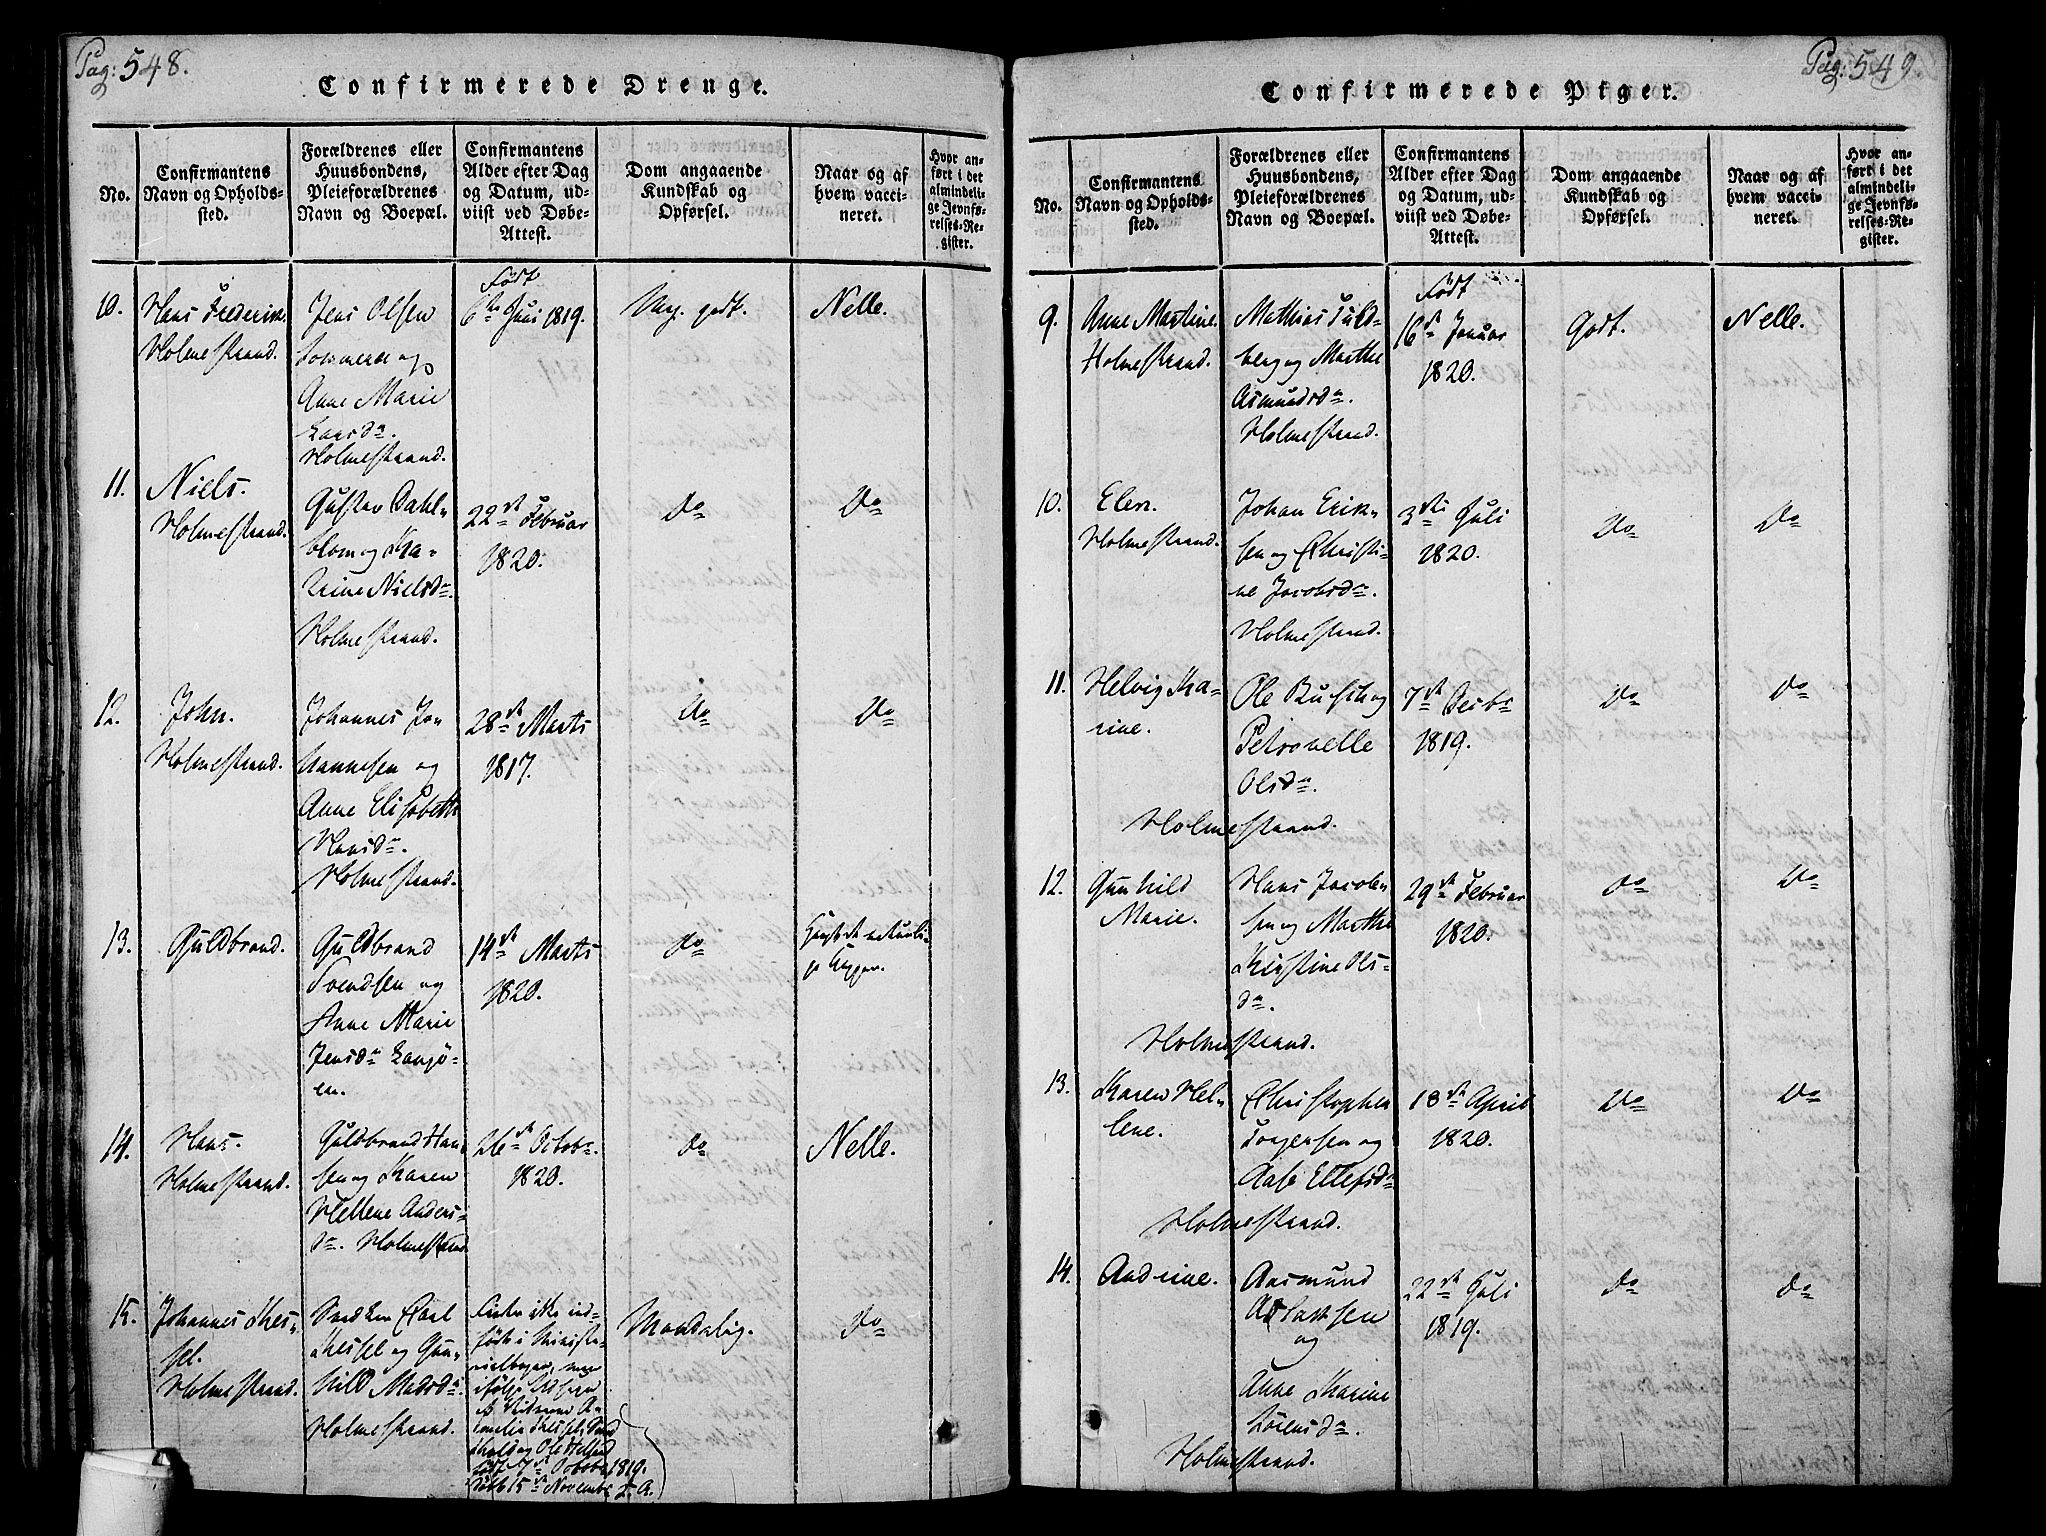 Pag: 548.
Confirmerede Drenge.
No.
Confirmantens
Navn og Opholds-
sted.
Forældrenes eller
Huusbondens,
Pleieforældrenes
Navn og Boepæl.
Confirmantens
Alder efter Dag
og Datum, ud-
viist ved Døbe-
Attest.
Dom angaaende
Kundskab og
Opførsel.
Naar og af
hvem vacci-
neret.
Hvor an-
ført i det
almindeli-
ge Jevnfø-
relses-Re-
gister.
10.
Hans Frederik.
Holmestrand.
Jens Olsen
og
Anne Marie
Larsdn.
Holmestrand.
Født
6te Juni 1819.
Meg. godt.
Nelle.
11.
Niels.
Holmestrand.
Gustav Dahl-
blom og Ka-
trine Nielsdn.
Holmestrand.
22de Februar
1820.
Do
Do
12.
John.
Holmestrand.
Johannes Jo-
hannesen og
Anne Elisabeth
Hansdn.
Holmestrand.
28de Marts
1817.
do
Do
13.
Guldbrand.
Guldbrand
Svendsen og
Anne Marie
Jensdn Langø-
en.
14de Marts
1820.
do
Havt de naturli-
ge Kopper.
14.
Hans.
Holmestrand.
Guldbrand Han-
sen og Karen
Hellene Anders-
dn. Holmestrand
26de Octobr.
1820.
do
Nelle.
15.
Johannes Kes-
sel.
Holmestrand.
Snedker Carl
Kessel og Gun-
hild Madsdn.
Holmestrand.
Findes ikke ind-
ført i Ministe-
rialbogen, men
ifølge
af Vidnerne A-
melia Kessel,
og Ole
født 7de Octobr 1819.
døbt 15de Novembr s. A.
Maadelig.
do
Pag: 549.
Confirmerede Piger.
No.
Confirmantens
Navn og Opholds-
sted.
Forældrenes eller
Huusbondens,
Pleieforældrenes
Navn og Boepæl.
Confirmantens
Alder efter Dag
og Datum, ud-
viist ved Døbe-
Attest.
Dom angaaende
Kundskab og
Opførsel.
Naar og af
hvem vacci-
neret.
Hvor an-
ført i det
almindeli-
ge Jevnfø-
relses-Re-
gister.
9.
Anne Martine.
Holmestrand.
Mathias Guld-
berg og Marthe
Asmundsdn.
Holmestrand.
Født
16de Januar
1820.
Godt.
Nelle.
10.
Elen.
Holmestrand.
Johan Erik-
sen og Christi-
ne Jacobsdn.
Holmestrand.
3die Juli
1820.
Do
Do
11.
Helvig Ka-
rine.
Ole Busk og
Petronelle
Olsdn.
Holmestrand.
7de Decbr
1819.
Do
Do
12.
Gunhild
Marie.
Hans Jacob-
sen og Marthe
Kirstine Ols-
dn.
Holmestrand.
29de Februar
1820.
do
Do
13.
Karen Hel-
lene.
Christopher
Torgersen og
Aase Ellefsdn
Holmestrand.
18de April
1820.
Do
Do
14.
Andrine.
Aasmund
Aslaksen
og
Anne Karine
Sørensdn.
Holmestrand.
22de Juli
1819.
do
do